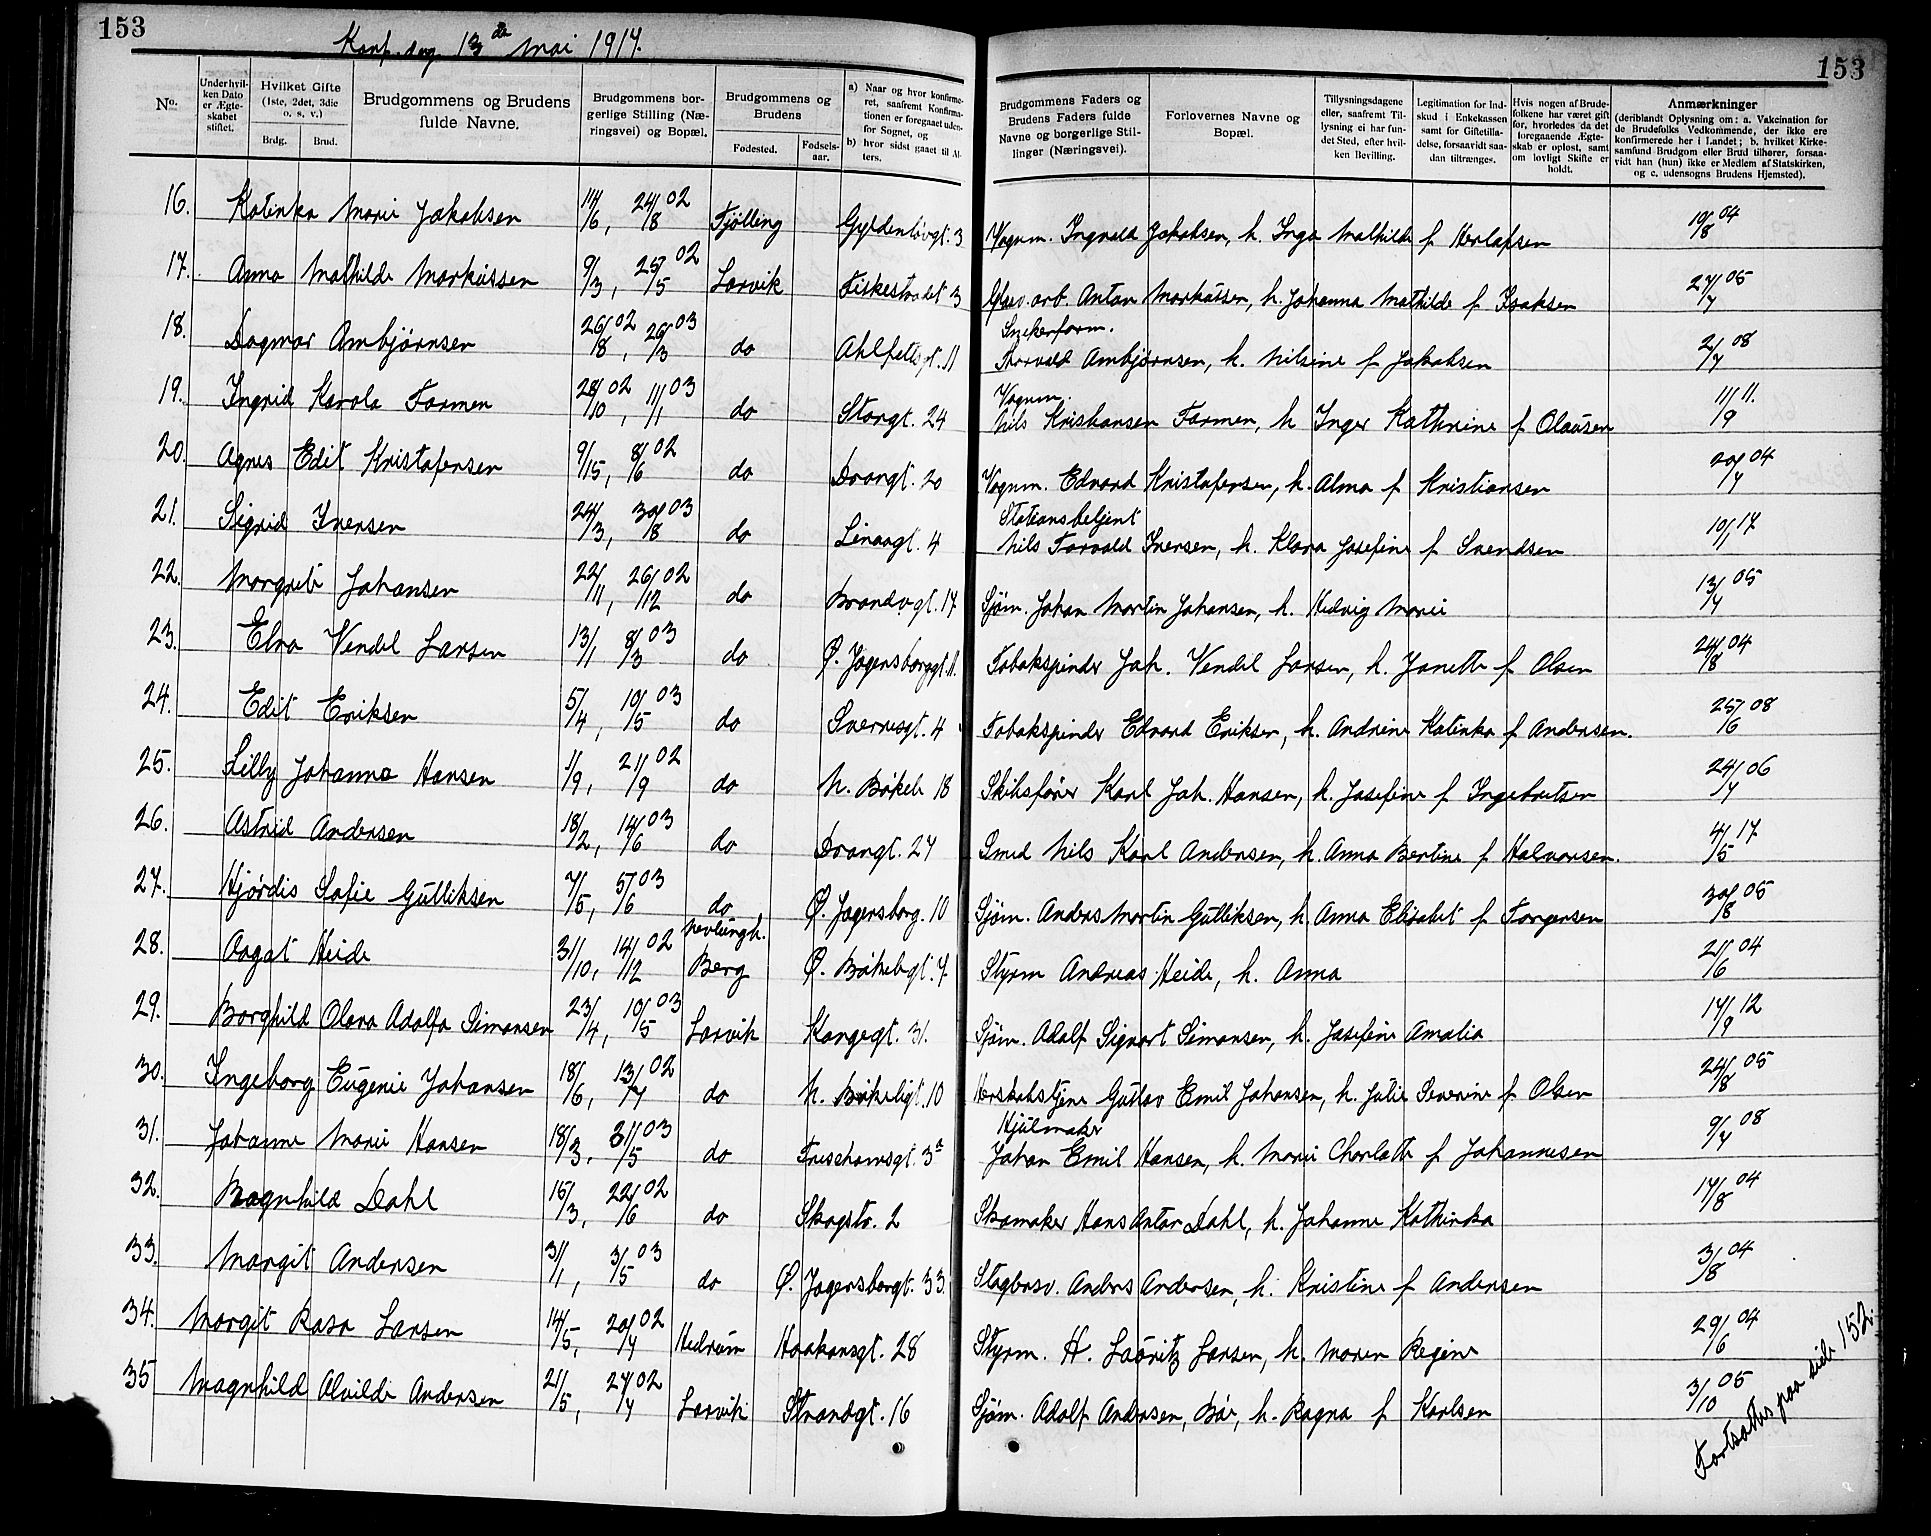 153
153
Konf. dag 13de mai 1917.
No.
Underhvilken Dato er Ægteskabet stiftet.
Hvilket Gifte (1ste, 2det, 3die o. s. v.)
Brdg. Brud.
Brudgommens og Brudens fulde Navne.
Brudgommens borgerlige Stilling (Næringsvei) og Bopæl.
Brudgommens og Brudens
Fødested. Fødselsaar.
a) Naar og hvor konfirmeret, saafremt Konfirmationen er foregaaet udenfor Sognet, og
b) hvor sidst gaaet til Alters.
Brudgommens Faders og Brudens Faders fulde Navne og borgerlige Stillinger (Næringsvei).
Forlovernes Navne og Bopæl.
Tillysningsdagene eller, saafremt Tillysning ei har fundet Sted, efter hvilken Bevilling.
Legitimation for Indskud i Enkekassen samt for Giftetilladelse, forsaavidt saadan tiltrænges.
Hvis nogen af Brudefolkene har været gift før, hvorledes da det foregaaende Ægteskab er opløst, samt om lovligt Skifte er holdt.
Anmærkninger
(deriblandt Oplysning om: a. Vakcination for de Brudefolks Vedkommende, der ikke ere konfirmerede her i Landet; b. hvilket Kirkesamfund Brudgom eller Brud tilhører, forsaavidt han (hun) ikke er Medlem af Statskirken, og c. udensogns Brudens Hjemsted).
16. Katinka Marie Jakobsen 14/6, 24/8 02 Tjølling Gyldenløvgt. 3 Vognm. Ingvald Jakobsen, h. Inga Mathilde f Herlofsen 19/8 04
17. Anna Mathilde Markussen 9/3, 25/5 02 Larvik Fiskestrædet 3 Glasv. arb. Anton Markussen, h. Johanna Mathilde f Isaksen 27/7 05
18. Dagmar Ambjørnsen 26/8 02, 26/3 03 do Ahlfeltsgt. 11 Snekerform. Thorvald Ambjørnsen, h. Nilsine f Jakobsen 2/7 08
19. Ingrid Karola Farmen 28/10 02, 11/1 03 do Storgt. 24 Vognm. Nils Kristiansen Farmen, h Inger Kathrine f Olausen 11/9 11.
20. Agnes Edit Kristofersen 9/15, 8/6 02 do Drangt. 20 Vognm. Edvard Kristofersen, h. Alma f Kristiansen 20/7 04
21. Sigrid Iversen 24/3, 30/8 03 do Linaagt. 4 Stationsbetjent Nils Torvald Iversen, h. Klara Josefine f Svendsen 10/1 17
22. Margrete Johansen 22/11, 26/12 02 do Brandvgt. 17 Sjøm. Johan Martin Johansen, h. Hedvig Marie 13/7 05
23. Elna Vendel Larsen 13/1 8/3 03 do Ø. Jegersborggt. 11. Tobakspinder Joh. Vendel Larsen, h. Janette f Olsen 24/8 04
24. Edit Eriksen 5/4, 10/5 03 do Sverresgt. 4 Tobakspinder Edvard Eriksen, h. Andrine Katinka f Andersen. 25/6 08
25. Lilly Johanna Hansen 1/9, 21/9 02 do N. Bøkele 18 Skibsfører Karl Joh. Hansen, h. Josefine f Ingebretsen 24/7 06
26. Astrid Andersen 18/2, 14/6 03 do Drangt. 27 Smed Nils Karl Andersen, h. Anna Bertine f Halvorsen. 4/5 17
27. Hjørdis Sofie Gulliksen 7/5, 5/6 03 do Ø. Jegersborg. 10 Sjøm. Anders Martin Gulliksen, h. Anna Elisabet f Torgersen 30/8 05
28. Aagot Heide 31/10, 14/12 02 Nevlungh. Berg Ø. Bøkelgt. 7. Styrm Andreas Heide, h. Anna 21/6 04
29. Borghild Olava Adolfa Simonsen 23/4, 10/5 03 Larvik Kongegt. 31. Sjøm. Adolf Sigvart Simonsen, h. Josefine Amalia 17/9 12
30. Ingeborg Eugenie Johansen 18/6, 13/7 02 do N. Bøkeligt. 10 Herskabstjene Gustav Emil Johansen, h. Julie Severine f Olsen 24/8 05
31. Johanne Marie Hansen 18/3, 21/5 03 do 3a Hjulmaker Johan Emil Hansen, h. Marie Charlotte f Johannesen 9/7 08
32. Ragnhild Dahl 15/3, 22/6 02 do Skogstv. 2 Skomaker Hans Anton Dahl, h. Johanne Kathinka 17/8 04
33. Margit Andersen 31/1, 3/5 03 do Ø. Jegersborgt. 33. Anders Andersen, h. Kristine f Andersen 3/8 04
34. Margit Rosa Larsen 14/5, 20/7 02 Hedrum Haakonsgt. 28 Styrm. H. Lauritz Larsen, h. Maren Regine 29/6 04
35 Magnhild Alvilde Andersen 21/5, 27/7 02 Larvik Strandgt. 16 Sjøm. Adolf Andersen, Bøe, h. Ragna f Karlsen 3/10 05
Fortsættes paa side 152.